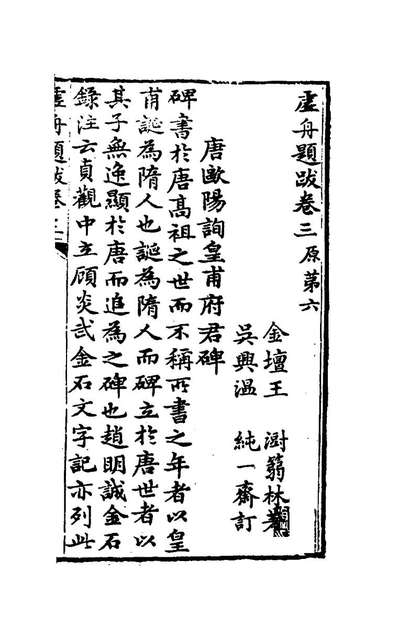 虛舟題跋卷三原第六
金壇王　澍篛林著
吳興溫　純一齋訂
唐歐陽詢皇甫府君碑
碑書於唐高祖之世而不稱所書之年者以皇
甫誕為隋人也誕為隋人而碑立於唐世者以
其子無逸顯於唐而追為之碑也趙明誠金石
錄注云貞觀中立顧炎武金石文字記亦列此
虛舟題跋卷三